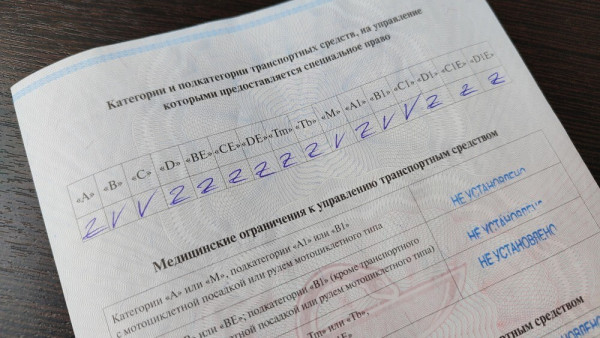 Категории и подкатегории транспортных средств, на управление
которыми предоставляется специальное право
«A» «B» «C» «D» «BE» «CE» «DE» «Tm» «Tb» «M» «A1» «B1» «C1» «D1» «C1E» «D1E»
Z V V Z Z Z Z Z Z V Z V V Z Z Z
Медицинские ограничения к управлению транспортным средством
Категории «A» или «M», подкатегории «A1» или «B1»
с мотоциклетной посадкой или рулем мотоциклетного типа
НЕ УСТАНОВЛЕНО
или «BE», подкатегории «B1» (кроме транспортного
посадкой или рулем мотоциклетного типа)
НЕ УСТАНОВЛЕНО
«Tm» или «Tb»,
НЕ УСТАНОВЛЕНО
средством